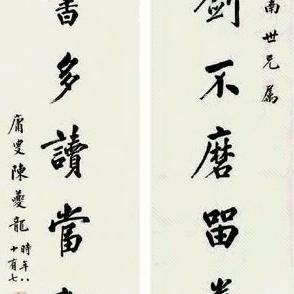 南世兄屬
劍不磨留
書多讀當
庸叟陳夔龍時年八
十有七